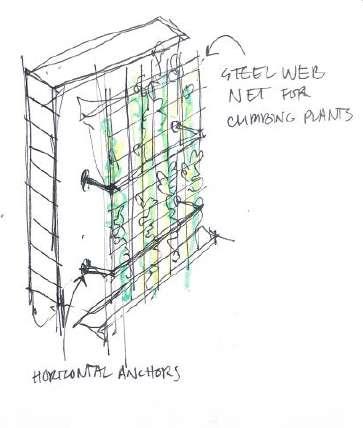 STEEL WEB
NET FOR
CLIMBING PLANTS
HORIZONTAL ANCHORS